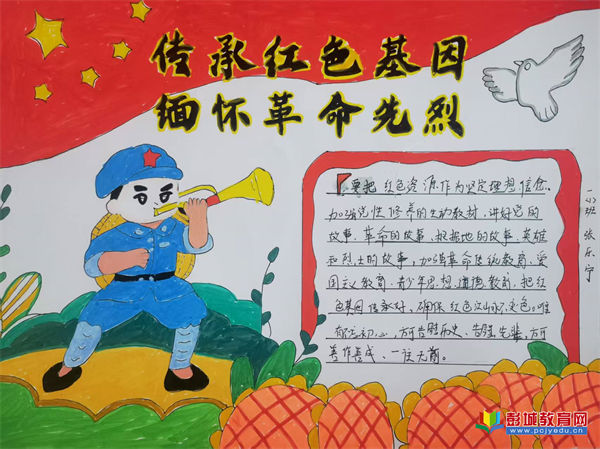 传承红色基因
缅怀革命先烈
要把红色资源作为坚定理想信念、
加强党性修养的生动教材，讲好党的
故事、革命的故事、根据地的故事、英雄
和烈士的故事，加强革命传统教育、爱
国主义教育、青少年思想道德教育，把红
色基因传承好，确保红色江山永不变色。唯
有不忘初心，方可告慰历史、告慰先辈，方可
善作善成、一往无前。
一(5)班 张乐宁
彭城教育网
www.pcjyedu.cn